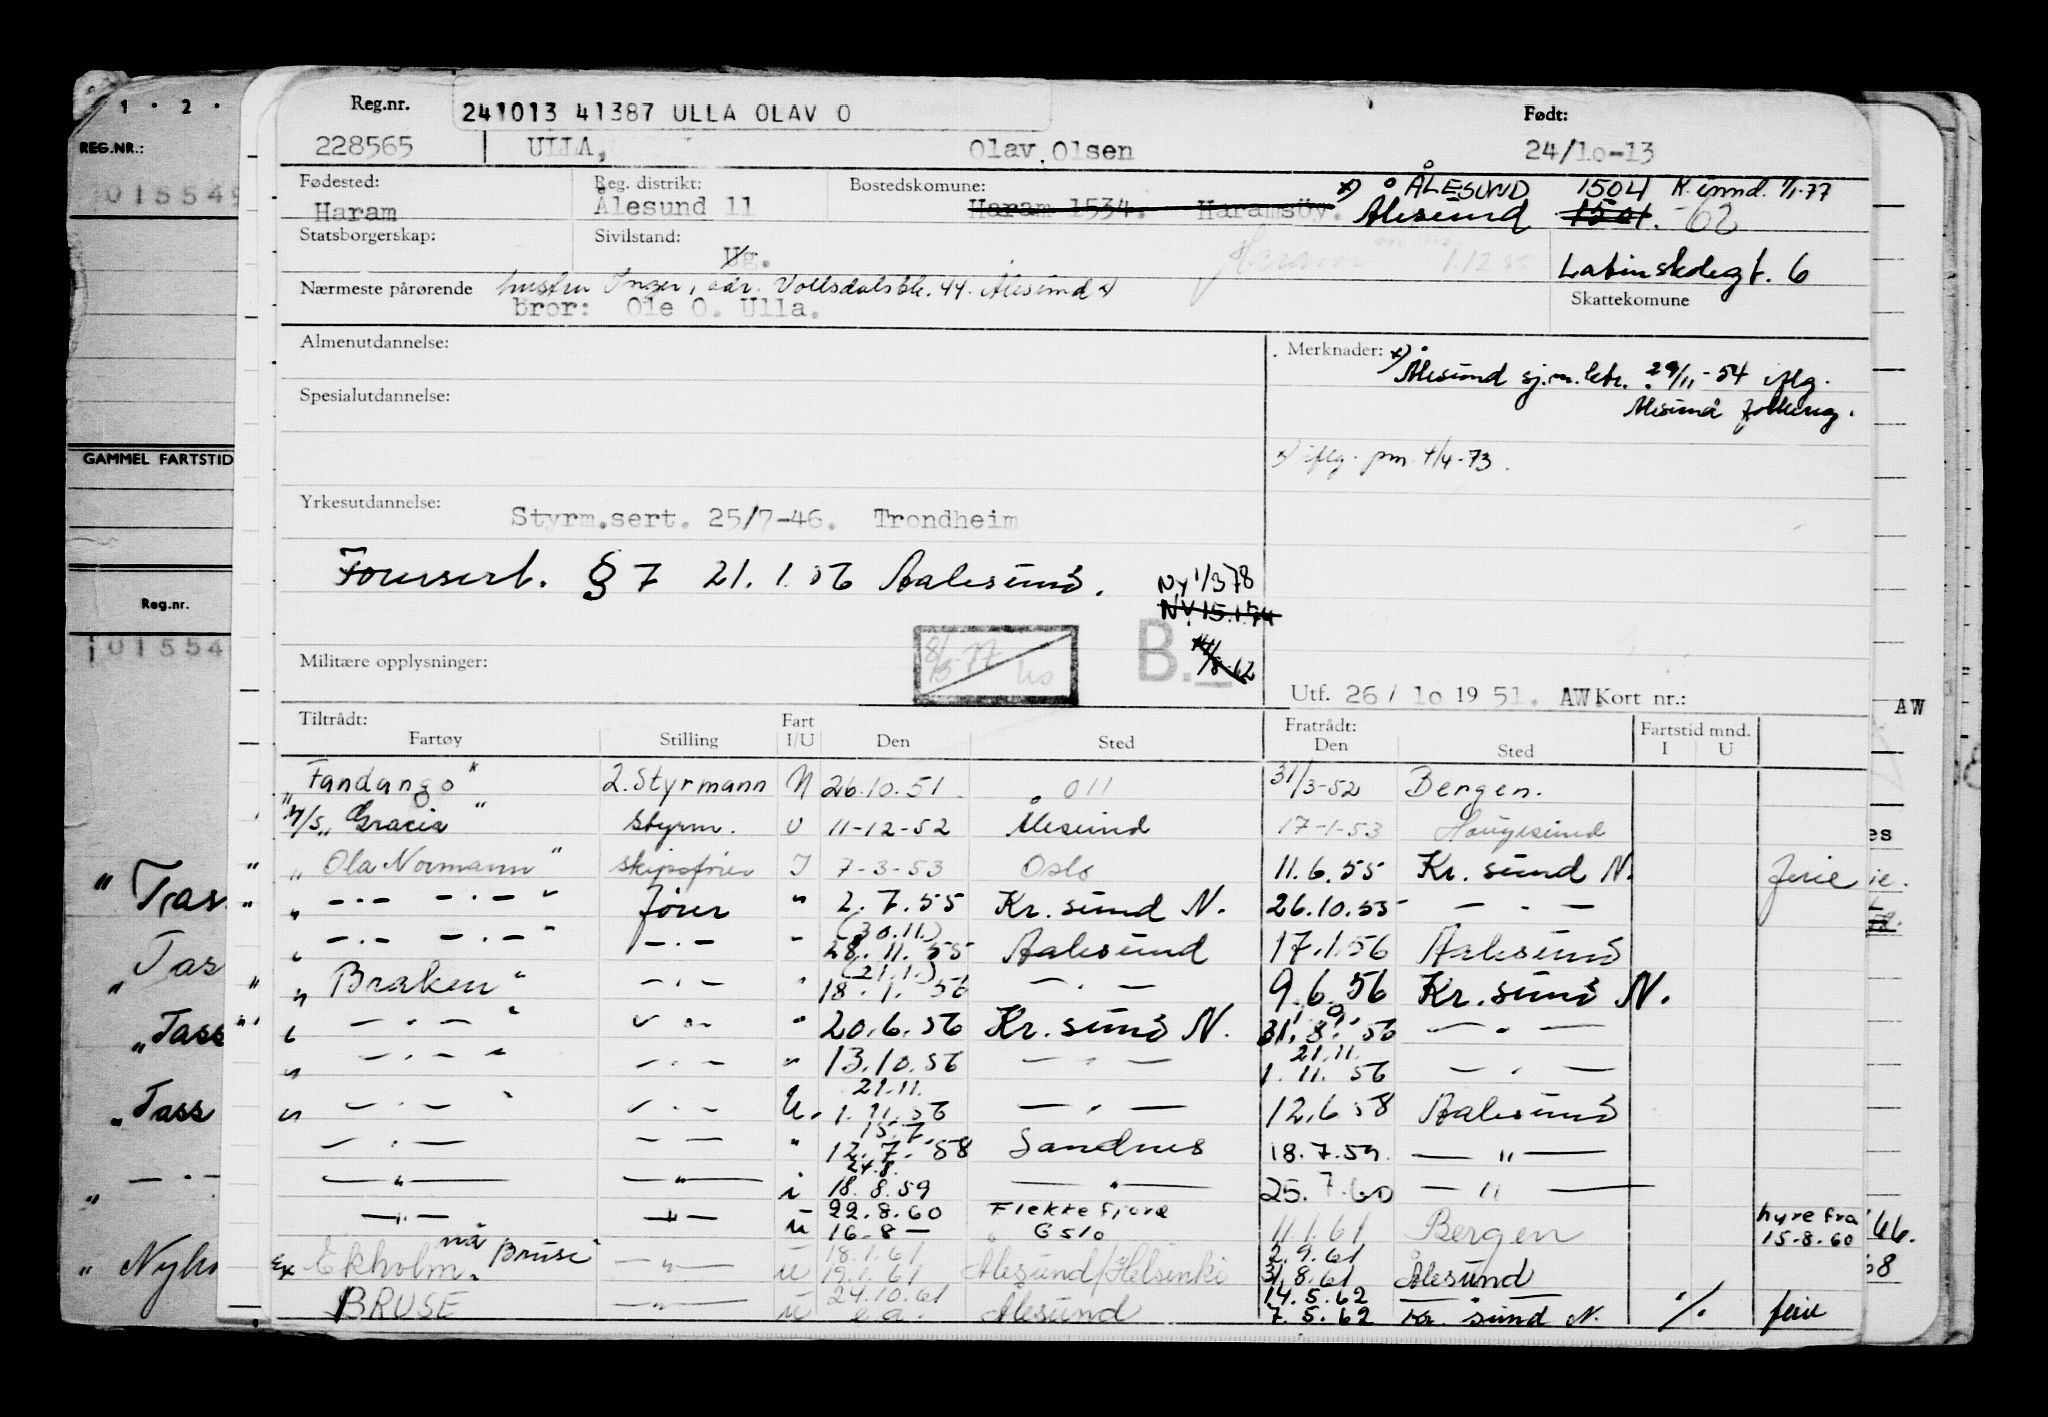 1 · 2 ·
REG.NR.:
GAMMEL FARTSTID
Reg.nr.
Reg.nr. 241013 41387 ULLA OLAV O Født:
228565 ULLA, Olav Olsen 24/10-13
Fødested: Reg. distrikt: Bostedskomune: x) ÅLESUND 1504 K. innd. 1/1-77
Haram Ålesund 11 Haram 1534. Haramsöy. Ålesund 1501. 62
Statsborgerskap: Sivilstand:
Ug. Haram 1.12.55 Latinskolegt. 6
Nærmeste pårørende hustru Inger, adr. Vollsdalsbk. 44. Ålesund x) Skattekomune
bror: Ole O. Ulla.
Almenutdannelse: Merknader: x) Ålesund sj.m.ktr. 29/11-54 iflg.
Spesialutdannelse: Ålesund folkereg.
x) iflg. pm 4/4-73.
Yrkesutdannelse:
Styrm.sert. 25/7-46. Trondheim
Førersert. § 7 21.1.56 Aalesund. Ny 1/3 78
NY 15.1.74
Militære opplysninger: B. 62
Utf. 26/10 1951. AW Kort nr.:
AW
Tiltrådt: Fart Fratrådt: Fartstid mnd.
Fartøy Stilling I/U Den Sted Den Sted I U
"Fandango" 2. Styrmann N 26.10.51 011 31/3-52 Bergen.
M/S "Gracia" Styrm. U 11-12-52 Ålesund 17-1-53 Haugesund
"Ola Normann" skipsfører I 7-3-53 Oslo 11.6.55 Kr. sund N. ferie
" — · — — · — " fører " 2.7.55 Kr. sund N. 26.10.55 — · —
(30.11.)
" — · — — · — " — · — " 28.11.55 Aalesund 17.1.56 Aalesund
(21.1.)
" Braken " — · — " 18.1.56 — · — 9.6.56 Kr. sund N.
" — · — " — · — " 20.6.56 Kr. sund N. 31.8.56 — · —
21.11.
" — · — " — · — " 13.10.56 — · — 1.11.56 — · —
21.11.
" — · — " — · — U. 1.11.56 — · — 12.6.58 Aalesund
15.7.
— · — — — " 12.7.58 Sandnes 18.7.59 — " —
24.8.
— " — — " — i 18.8.59 — " — 25.7.60 — " —
22.8.60 Flekkefjord hyre fra
— " — — " — u 16.8 — Oslo 11.1.61 Bergen 15.8.60
18.1.61 2.9.61
Ex Ekholm. nå Bruse " — " — u 19.1.61 Ålesund/Helsinki 31.8.61 Ålesund
24.10.61 14.5.62
BRUSE — " — u e.a. Ålesund 7.5.62 Kr. sund N. ./. ferie
"Tass
"Tass